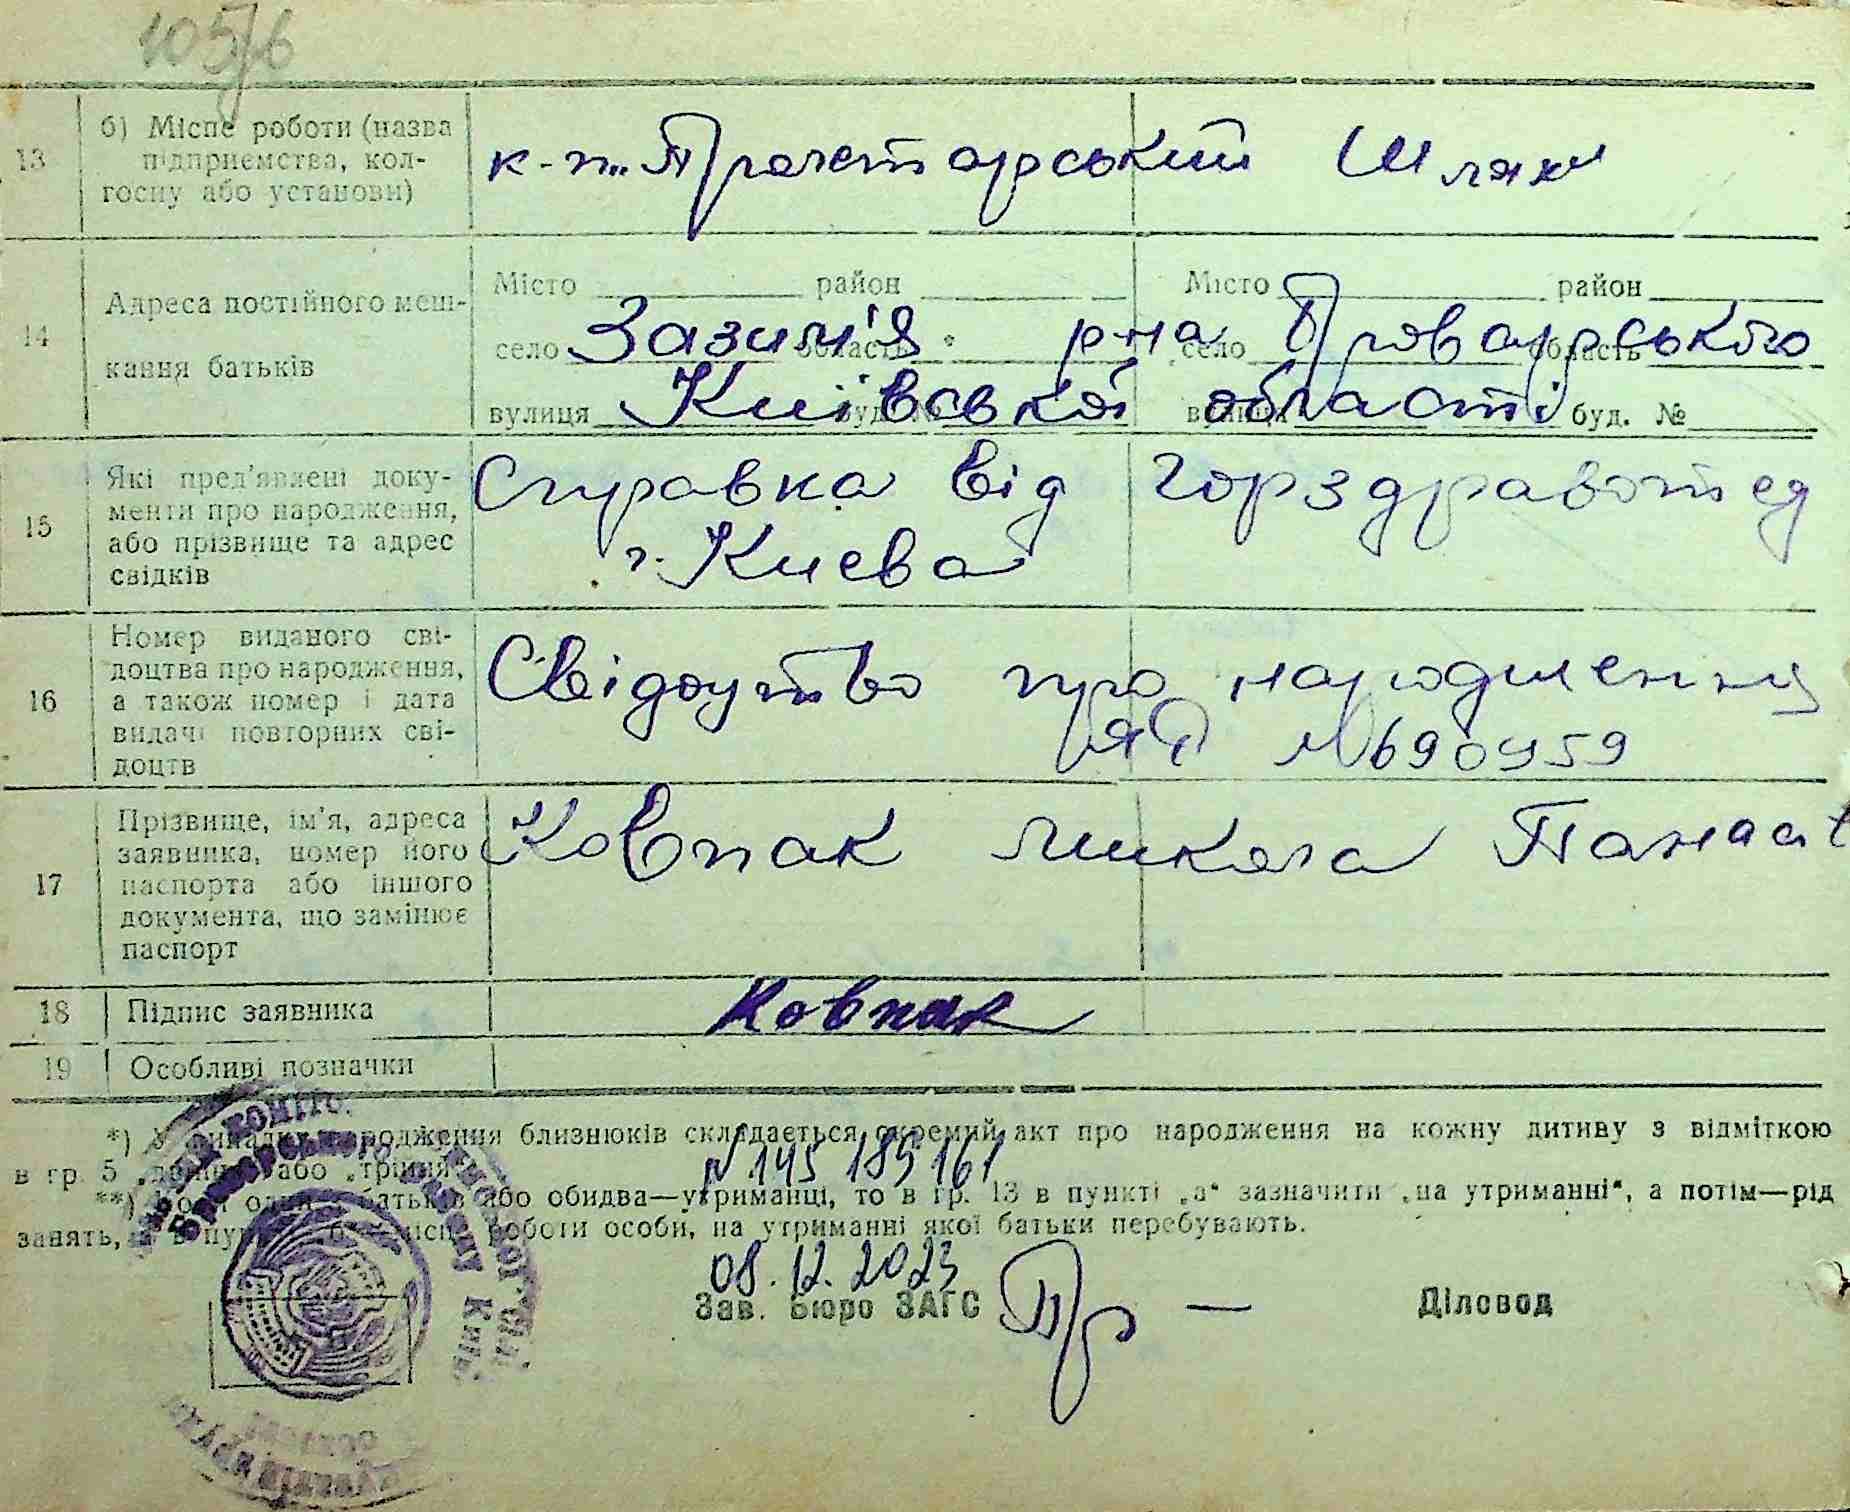 105/6
13 б) Місце роботи (назва підприємства, колгоспу або установи) к-п „Пролетарський Шлях"
14 Адреса постійного мешкання батьків
Місто район Місто район
село Зазим'я область р-на село Броварського область
вулиця Київської буд. № вулиця області буд. №
15 Які пред'явлені документи про народження, або прізвище та адрес свідків
Справка від горздравотед
г. Києва
16 Номер виданого свідоцтва про народження, а також номер і дата видачі повторних свідоцтв
Свідоцтво про народження
№ 690959
17 Прізвище, ім'я, адреса заявника, номер його паспорта або іншого документа, що замінює паспорт
Ковпак Микола Панаст
18 Підпис заявника Ковпак
19 Особливі позначки
*) У випадку народження близнюків складається окремий акт про народження на кожну дитину з відміткою
в гр. 5 „двійня" або „трійня".
N 145 185 161
**) Коли один з батьків або обидва—утриманці, то в гр. 13 в пункті „а" зазначити „на утриманні", а потім—рід
занять, а в пункті „б" місце роботи особи, на утриманні якої батьки перебувають.
08.12.2023
Зав. Бюро ЗАГС Діловод